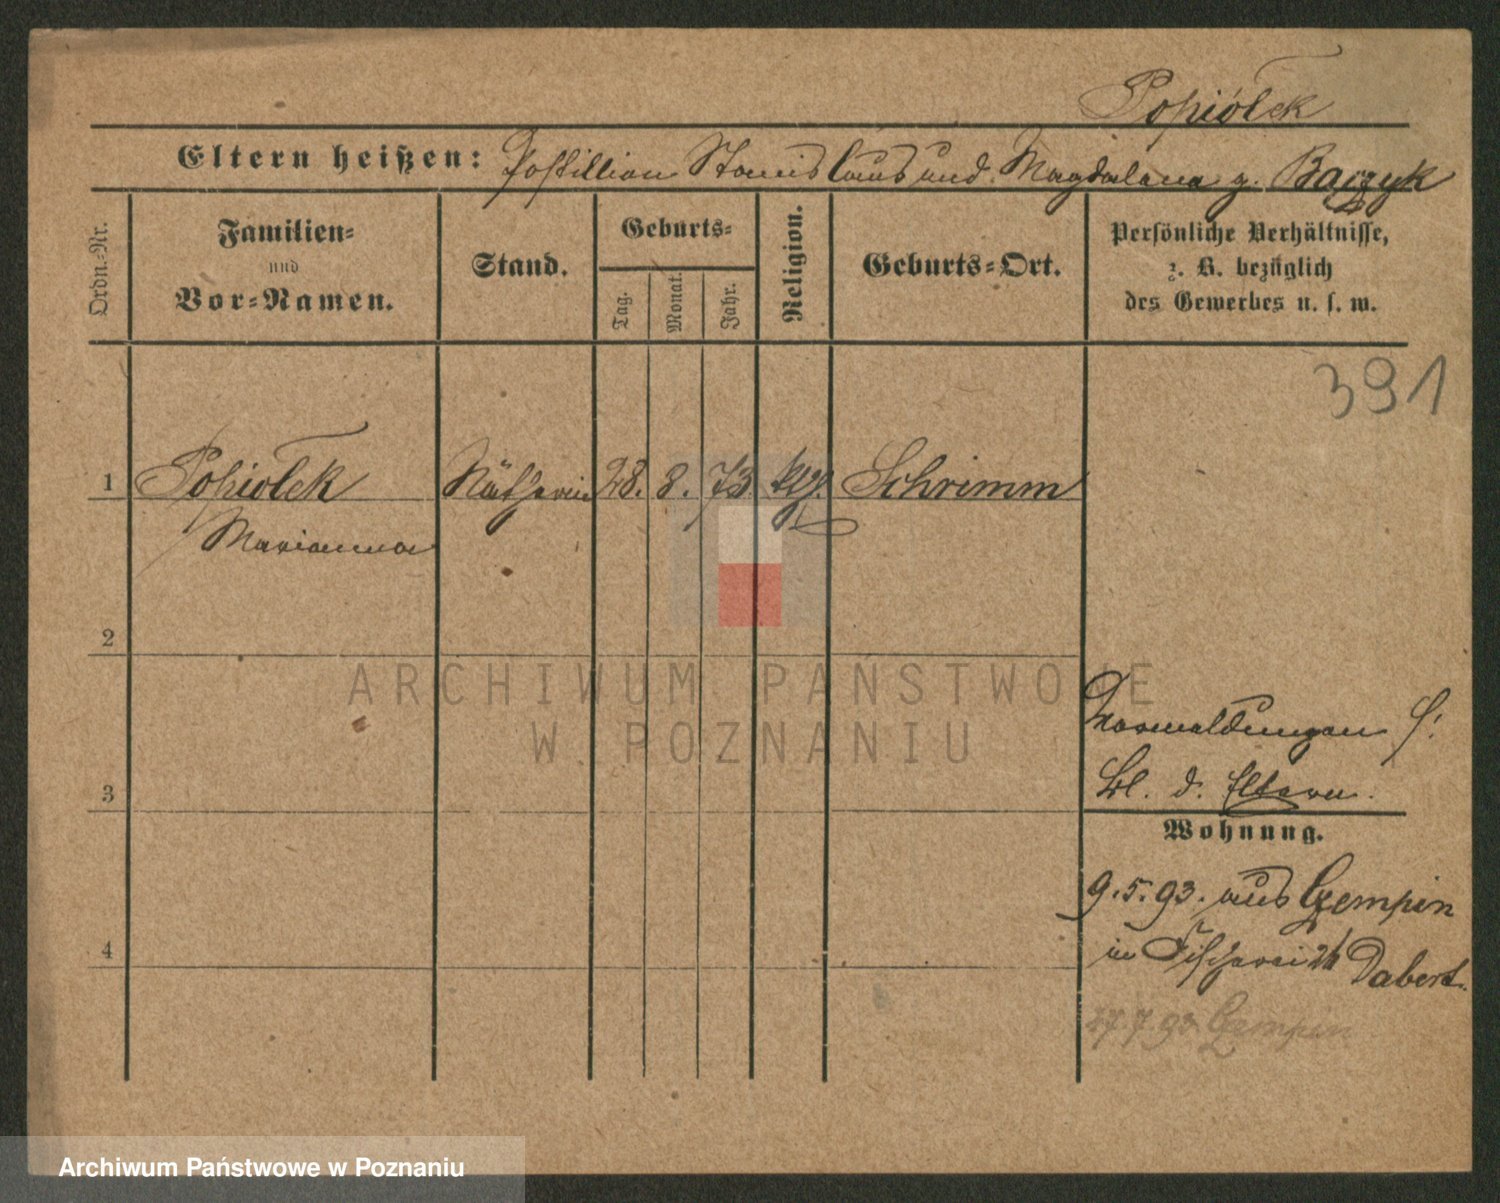 Popiołek
Eltern heißen: Postillion Stanislaus und Magdalena g. Bajzyk
Ordn.-Nr.
Familien-
und
Vor-Namen.
Stand.
Geburts-
Tag.
Monat.
Jahr.
Religion.
Geburts-Ort.
Persönliche Verhältnisse,
z. B. bezüglich
des Gewerbes u. s. w.
391
1 Popiołek Nätherin 28. 8. 73 Schrimm
Marianna
2
ARCHIWUM PAŃSTWOWE
W POZNANIU
d. Eltern.
3
Wohnung.
9.5.93. aus Czempin
in Fischerei 26 Dabert.
4
27.7.93 Czempin
Archiwum Państwowe w Poznaniu